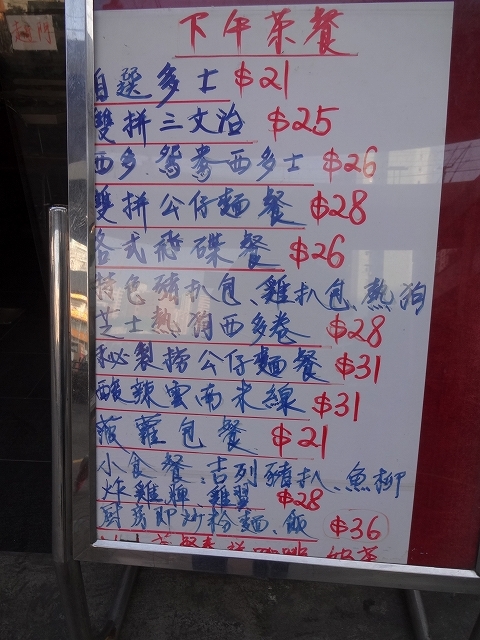 下午茶餐
自選多士 $21
雙拼三文治 $25
西多.鴛鴦西多士 $26
雙拼公仔麵餐 $28
各式飛碟餐 $26
特色豬扒包、雞扒包、熱狗
芝士熱狗西多卷 $28
秘製撈公仔麵餐 $31
酸辣雲南米線 $31
菠蘿包餐 $21
小食餐、吉列豬扒、魚柳
炸雞脾、雞翼 $28
厨房即炒粉麵、飯 $36